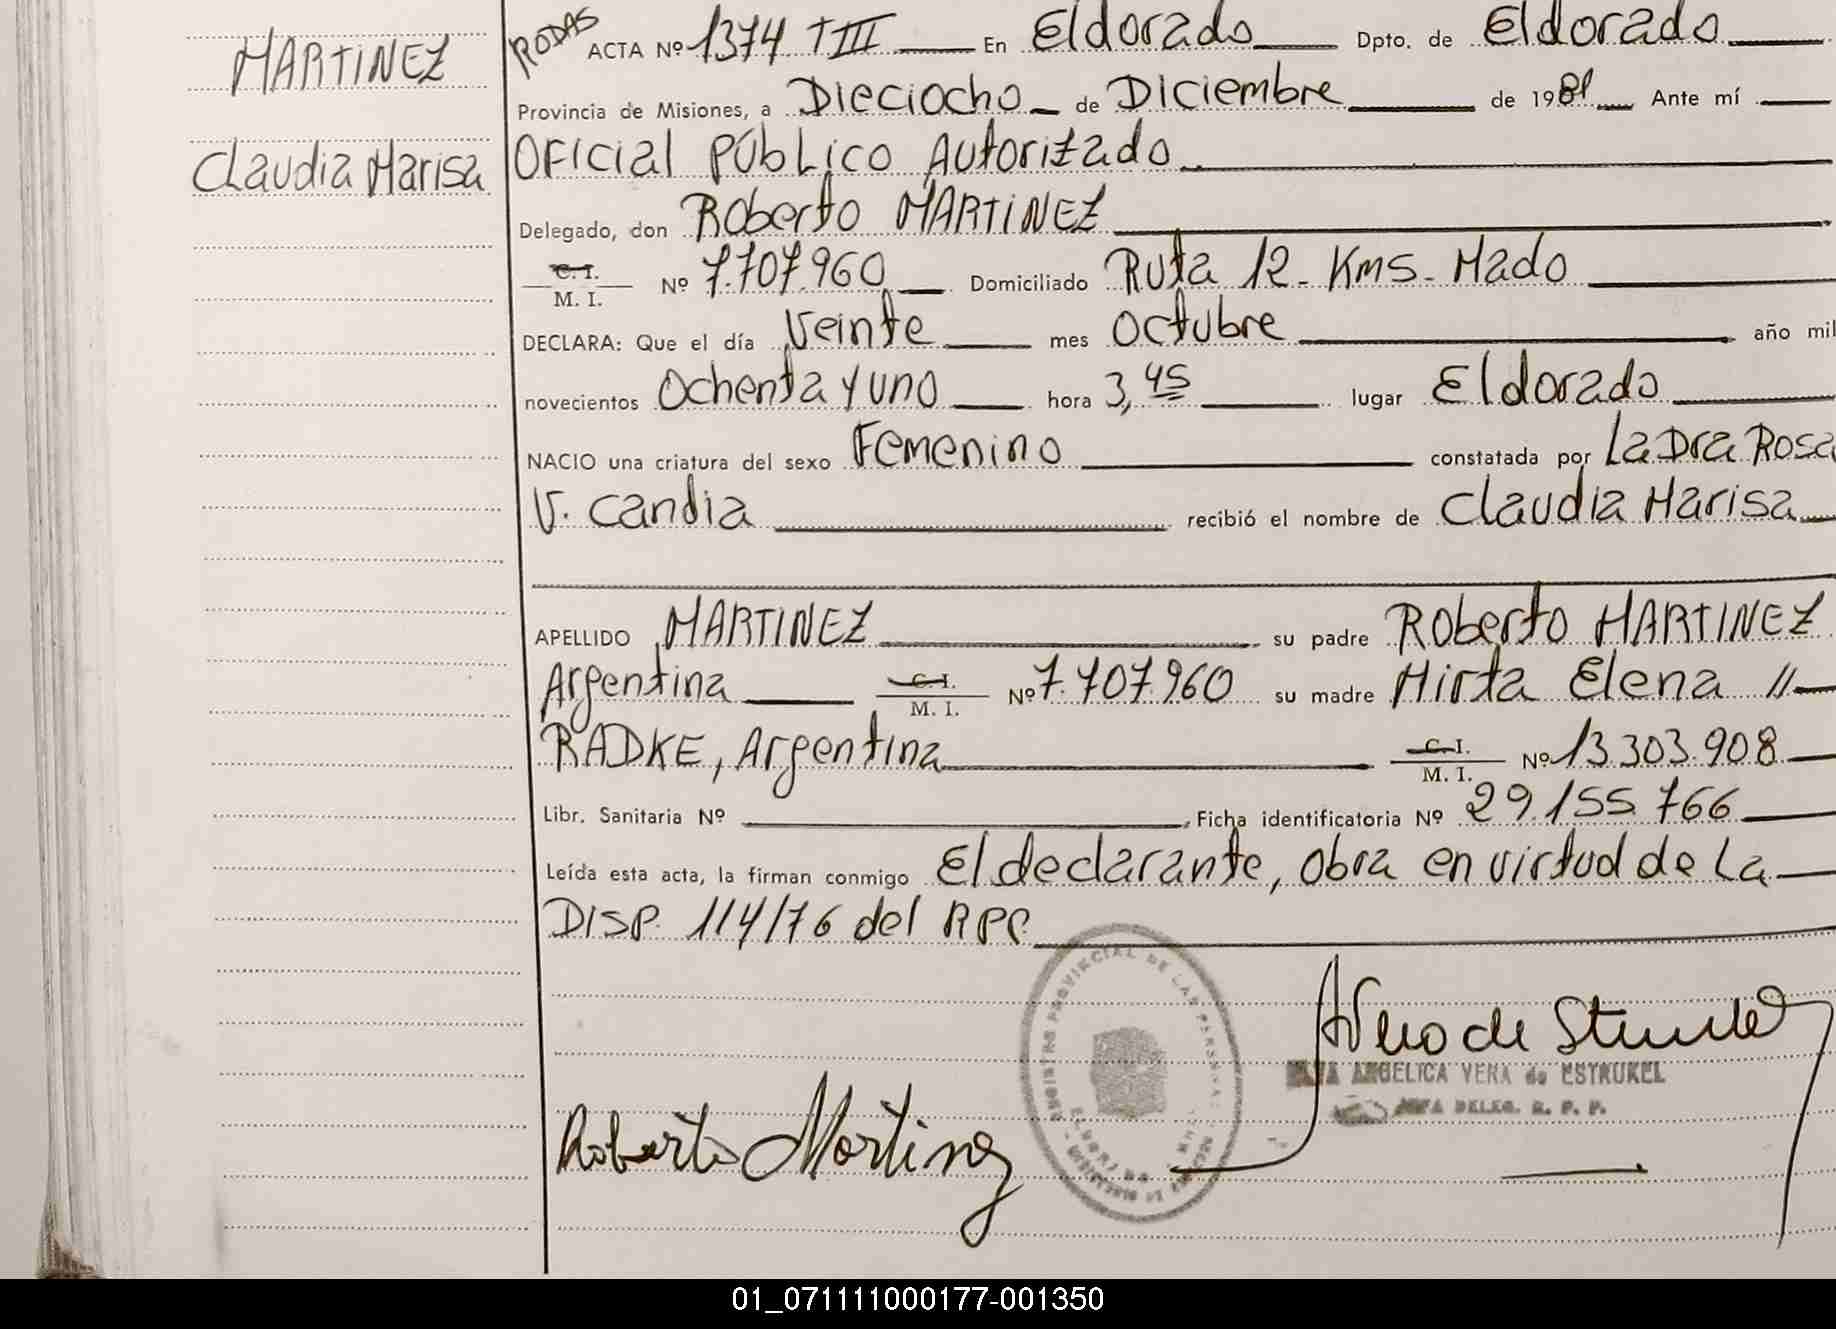 MARTINEZ
Claudia Marisa
RODAS ACTA Nº 1374 TIII En Eldorado Dpto. de Eldorado
Provincia de Misiones, a Dieciocho de Diciembre de 1981 Ante mí
Oficial Público Autorizado
Delegado, don Roberto MARTINEZ
C. I.
M. I. Nº 7.707.960 Domiciliado Ruta 12 - Kms - Mado
DECLARA: Que el día Veinte mes Octubre año mil
novecientos Ochenta y uno hora 3,45 lugar Eldorado
NACIO una criatura del sexo Femenino constatada por La Dra Rosa
V. Candia recibió el nombre de Claudia Marisa
APELLIDO MARTINEZ su padre Roberto MARTINEZ
Argentina C. I. M. I. Nº 7.707.960 su madre Mirta Elena //
RADKE, Argentina C. I. M. I. Nº 13.303.908
Libr. Sanitaria Nº , Ficha identificatoria Nº 29.155.766
Leída esta acta, la firman conmigo El declarante, obra en virtud de la
DISP. 114/76 del RPP
REGISTRO PROVINCIAL DE LAS PERSONAS
ELDORADO
ANGELICA VERA de ESTRUKEL
JEFA DELEG. R. P. P.
Roberto Martinez
01_071111000177-001350